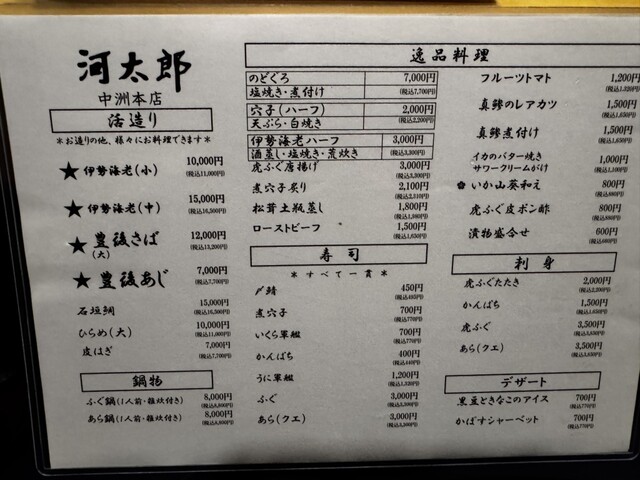 河太郎
中洲本店
活造り
*お造りの他、様々にお料理できます*
★ 伊勢海老(小) 10,000円
(税込11,000円)
★ 伊勢海老(中) 15,000円
(税込16,500円)
★ 豊後さば(大) 12,000円
(税込13,200円)
★ 豊後あじ 7,000円
(税込7,700円)
石垣鯛 15,000円
(税込16,500円)
ひらめ(大) 10,000円
(税込11,000円)
皮はぎ 7,000円
(税込7,700円)
鍋物
ふぐ鍋(1人前・雑炊付き) 8,000円
(税込8,800円)
あら鍋(1人前・雑炊付き) 8,000円
(税込8,800円)
逸品料理
のどぐろ 7,000円
塩焼き・煮付け (税込7,700円)
穴子(ハーフ) 2,000円
天ぷら・白焼き (税込2,200円)
伊勢海老ハーフ 3,000円
酒蒸し・塩焼き・荒炊き (税込3,300円)
虎ふぐ唐揚げ 3,000円
(税込3,300円)
煮穴子炙り 2,100円
(税込2,310円)
松茸土瓶蒸し 1,800円
(税込1,980円)
ローストビーフ 1,500円
(税込1,650円)
寿司
*すべて一貫*
〆鯖 450円
(税込495円)
煮穴子 700円
(税込770円)
いくら軍艦 700円
(税込770円)
かんぱち 400円
(税込440円)
うに軍艦 1,200円
(税込1,320円)
ふぐ 3,000円
(税込3,300円)
あら(クエ) 3,000円
(税込3,300円)
フルーツトマト 1,200円
(税込1,320円)
真鯵のレアカツ 1,500円
(税込1,650円)
真鯵煮付け 1,500円
(税込1,650円)
イカのバター焼き 1,000円
サワークリームがけ (税込1,100円)
いか山葵和え 800円
(税込880円)
虎ふぐ皮ポン酢 800円
(税込880円)
漬物盛合せ 600円
(税込660円)
刺身
虎ふぐたたき 2,000円
(税込2,200円)
かんぱち 1,500円
(税込1,650円)
虎ふぐ 3,500円
(税込3,850円)
あら(クエ) 3,500円
(税込3,850円)
デザート
黒豆ときなこのアイス 700円
(税込770円)
かぼすシャーベット 700円
(税込770円)